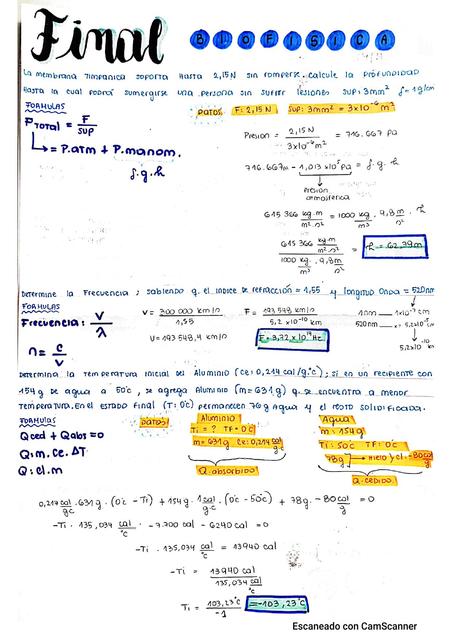 Final BIOFISICA
La membrana timpanica soporta hasta 2,15N sin romperse. calcule la profundidad
hasta la cual podrá sumergirse una persona sin sufrir lesiones. Sup: 3mm² ρ=1g/cm³
FORMULAS
P TOTAL = F / SUP
= P.atm + P.manom.
ρ.g.h
DATOS: F: 2,15 N SUP: 3mm² = 3x10⁻⁶ m²
Presion = 2,15 N / 3x10⁻⁶ m² = 716.667 Pa
716.667 Pa - 1,013 x10⁵ Pa = ρ.g.h
Presion atmosferica
615 366 kg.m / m².s² = 1000 kg / m³ . 9,8m / s² . h
615 366 kg.m / m².s² / 1000 kg / m³ . 9,8m / s² = h = 62,79m
Determine la Frecuencia; sabiendo q. el indice de refracción = 1,55 y longitud onda = 520nm
FORMULAS
Frecuencia: V / λ
n = c / v
V = 300 000 km/s / 1,55
V = 193 548,4 km/s
F = 193 548 km/s / 5,2 x10⁻¹⁰ km
F = 3,72 x 10¹⁴ Hz
520nm
5,2x10⁻¹⁰
Determina la temperatura inicial del Aluminio (Ce: 0,214 cal/g.°c); si en un recipiente con
154g de agua a 50°c, se agrega Aluminio (m=631g) q. se encuentra a menor
temperatura. En el estado final (T: 0°c) permanecen 76g Agua y el resto solidificada.
FORMULAS
Q ced + Q abs = 0
Q: m. ce. ΔT
Q: cl. m
DATOS:
Aluminio
Ti = ? TF = 0°c
m = 631g Ce: 0,214
Q absorbido
Agua
m = 154g
Ti: 50°c TF: 0°c
78g → Hielo y cl = -80 cal/g
Q cedido
0,214 cal / g.c . 631g . (0°c - Ti) + 154g . 1 cal / g.c (0°c - 50°c) + 78g . -80 cal / g = 0
-Ti . 135,034 cal / °c - 7.700 cal - 6240 cal = 0
-Ti . 135,034 cal / °c = 13940 cal
-Ti = 13940 cal / 135,034 cal / °c
Ti = 103,23°c / -1 = -103,23°c
Escaneado con CamScanner